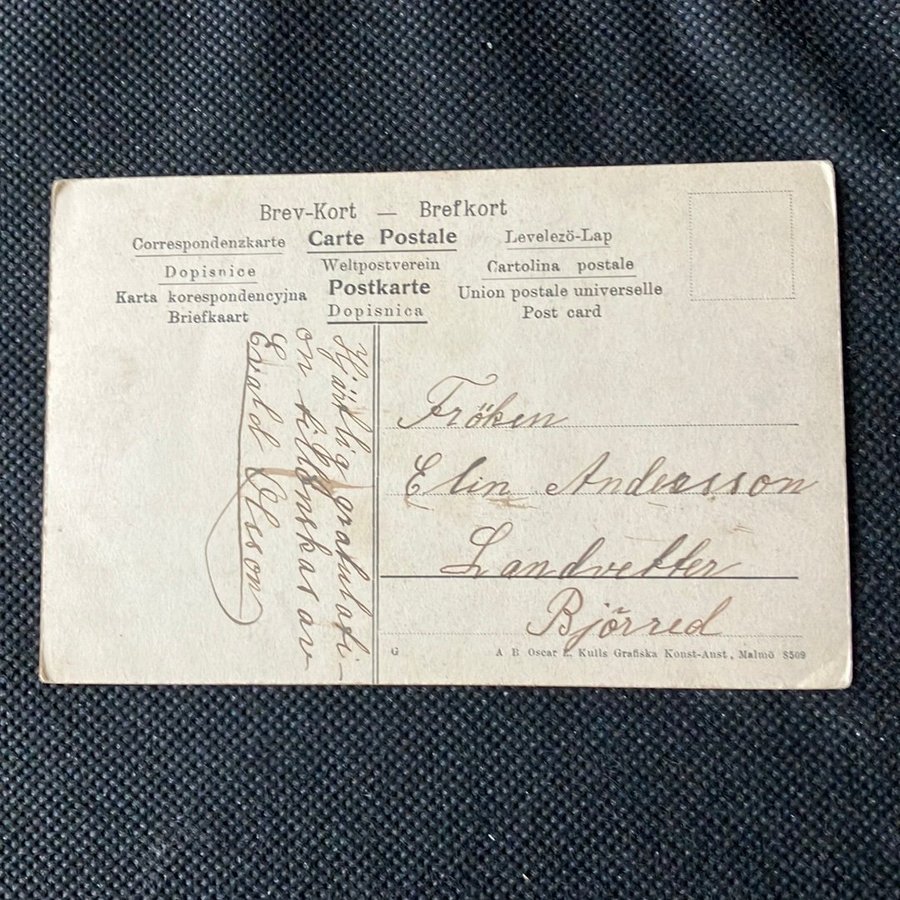 Brev-Kort — Brefkort
Correspondenzkarte Carte Postale Levelezö-Lap
Dopisnice Weltpostverein Cartolina postale
Karta korespondencyjna Postkarte Union postale universelle
Briefkaart Dopisnica Post card
Hjärtlig gratulati-
on tillönskas av
Evald Olsson
Fröken
Elin Andersson
Landvetter
Björred
G A B Oscar E. Kulls Grafiska Konst-Anst., Malmö 8509